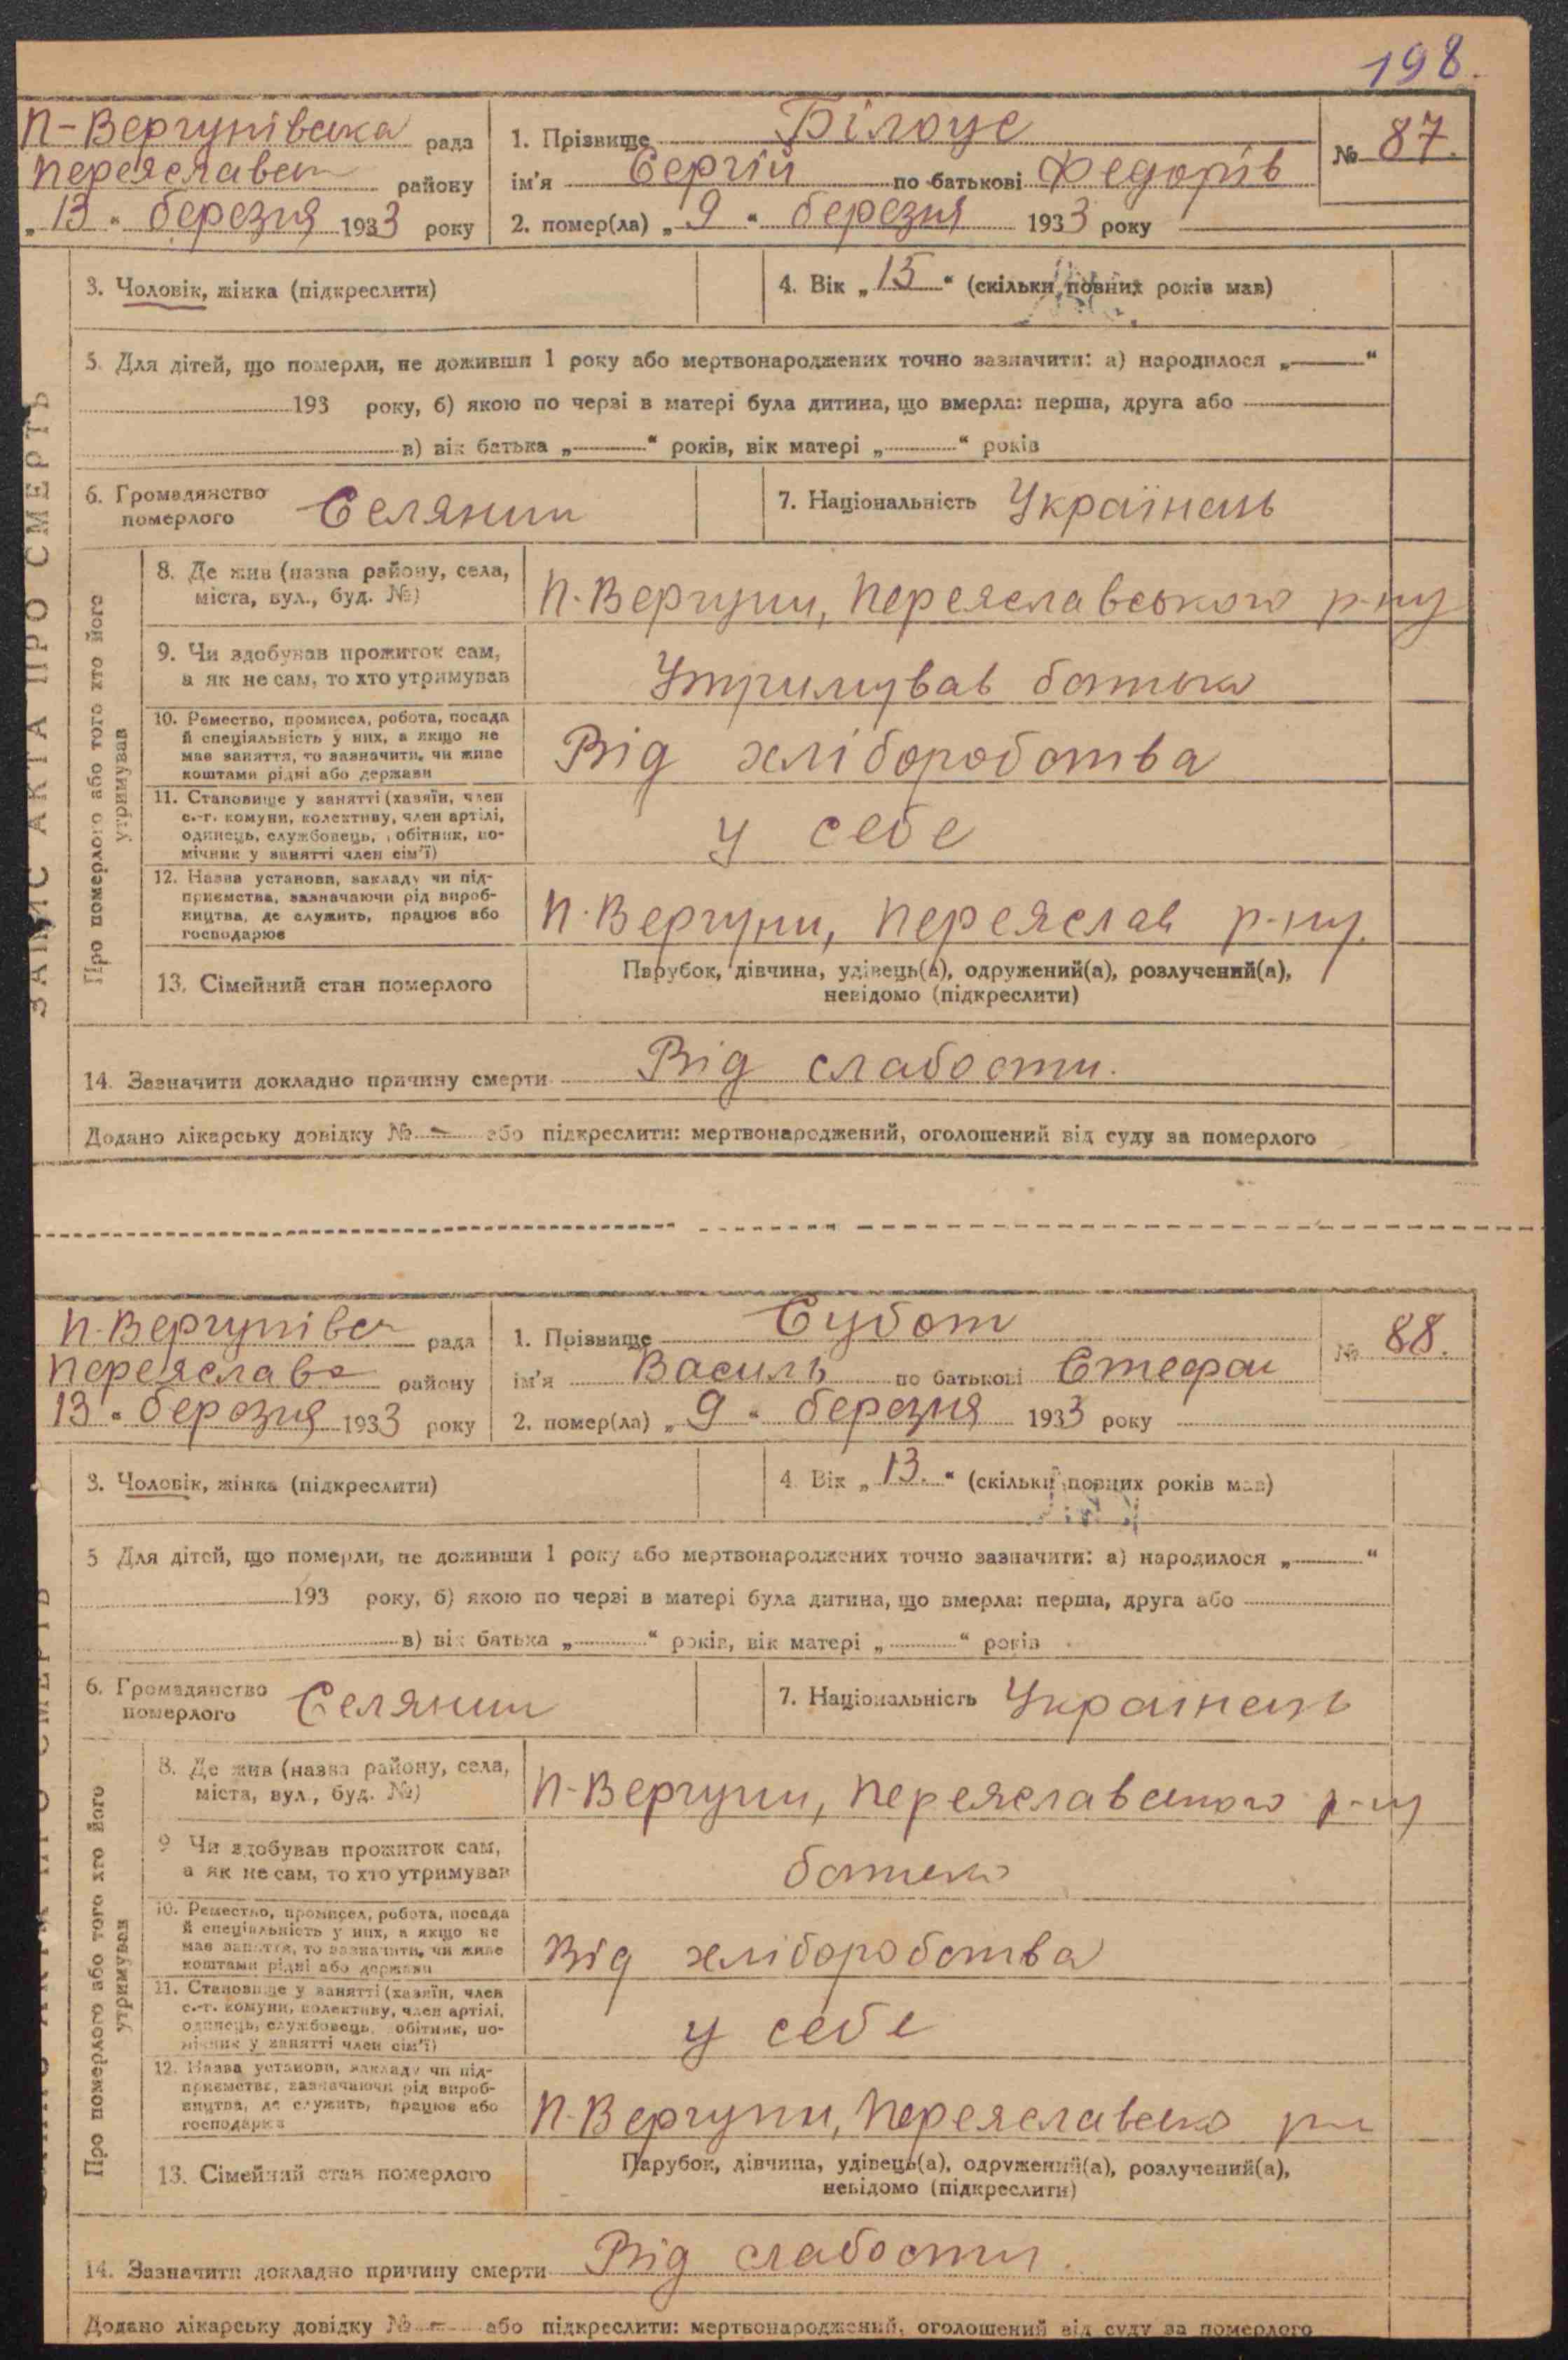 198.
П-Вергунівська рада
Переяславсь району
„13“ березня 1933 року
1. Прізвище Білоус
ім'я Сергій по батькові Федорів
№ 87.
2. помер(ла) „9“ березня 1933 року
ЗАПИС АКТА ПРО СМЕРТЬ
3. Чоловік, жінка (підкреслити)
4. Вік „15“ (скільки повних років мав)
5. Для дітей, що померли, не доживши 1 року або мертвонароджених точно зазначити: а) народилося „ “
193 року, б) якою по черзі в матері була дитина, що вмерла: перша, друга або
в) вік батька „ “ років, вік матері „ “ років
6. Громадянство
померлого Селянин
7. Національність Українець
Про померлого або того хто його
утримував
8. Де жив (назва району, села,
міста, вул., буд. №)
П.Вергуни, Переяславського р-ну
9. Чи здобував прожиток сам,
а як не сам, то хто утримував
Утримував батько
10. Ремество, промисел, робота, посада
й спеціяльність у них, а якщо не
має заняття, то зазначити, чи живе
коштами рідні або держави
Від хліборобства
11. Становище у занятті (хазяїн, член
с.-г. комуни, колективу, член артілі,
одинець, службовець, обітник, по-
мічник у занятті член сім'ї)
у себе
12. Назва установи, закладу чи під-
приємства, зазначаючи рід вироб-
ництва, де служить, працює або
господарює
П.Вергуни, Переяслав р-ну.
13. Сімейний стан померлого
Парубок, дівчина, удівець(а), одружений(а), розлучений(а),
невідомо (підкреслити)
14. Зазначити докладно причину смерти Від слабости.
Додано лікарську довідку № – або підкреслити: мертвонароджений, оголошений від суду за померлого
П.Вергунівсь рада
Переяславс району
13“ березня 1933 року
1. Прізвище Субот
ім'я Василь по батькові Стефан
№ 88.
2. помер(ла) „9“ березня 1933 року
3. Чоловік, жінка (підкреслити)
4. Вік „13.“ (скільки повних років мав)
5 Для дітей, що померли, не доживши 1 року або мертвонароджених точно зазначити: а) народилося „ “
193 року, б) якою по черзі в матері була дитина, що вмерла: перша, друга або
в) вік батька „ “ років, вік матері „ “ років
6. Громадянство
померлого Селянин
7. Національність Українець
Про померлого або того хто його
утримував
8. Де жив (назва району, села,
міста, вул., буд. №)
П-Вергуни, Переяславського р-ну
9 Чи здобував прожиток сам,
а як не сам, то хто утримував
батько
10. Ремество, промисел, робота, посада
й спеціяльність у них, а якщо не
має заняття, то зазначити, чи живе
коштами рідні або держави
Від хліборобства
11. Становище у занятті (хазяїн, член
с.-г. комуни, колективу, член артілі,
одинець, службовець, обітник, по-
мічник у занятті член сім'ї)
у себе
12. Назва установи, закладу чи під-
приємства, зазначаючи рід вироб-
ництва, де служить, працює або
господарює
П.Вергуни, Переяславсько
13. Сімейний стан померлого
Парубок, дівчина, удівець(а), одружений(а), розлучений(а),
невідомо (підкреслити)
14. Зазначити докладно причину смерти Від слабости.
Додано лікарську довідку № – або підкреслити: мертвонароджений, оголошений від суду за померлого